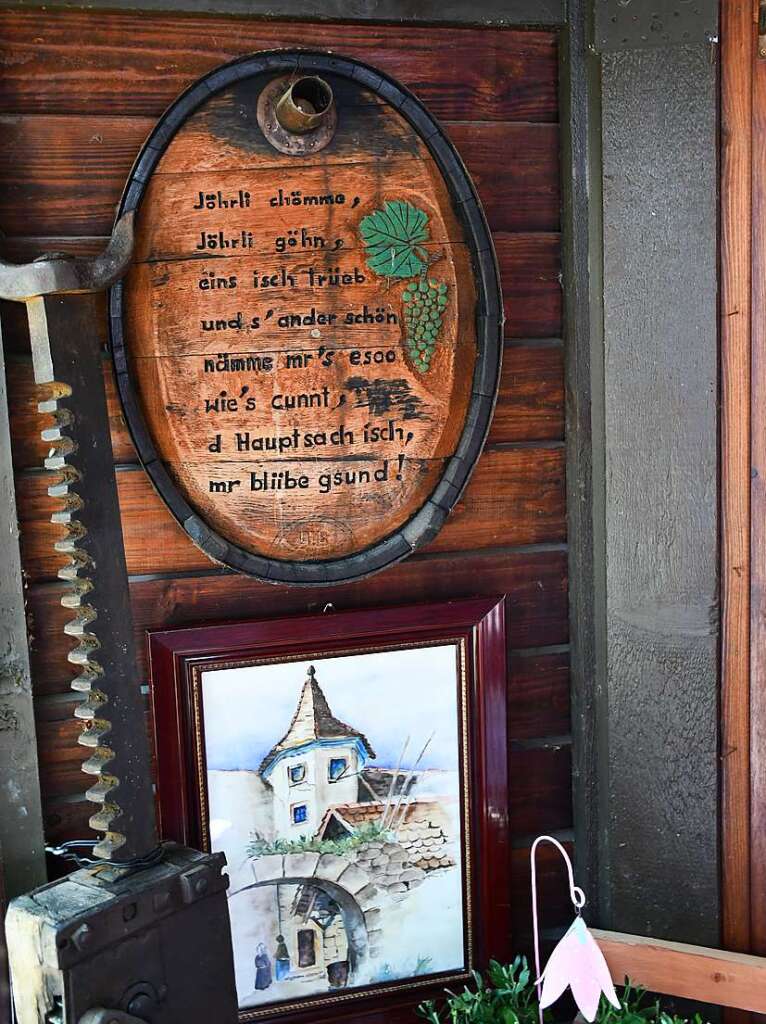 Jöhrli chömme,
Jöhrli göhn,
eins isch trüeb
und s'ander schön
nämme mr's esoo
wie's cunnt,
d Hauptsach isch,
mr bliibe gsund!